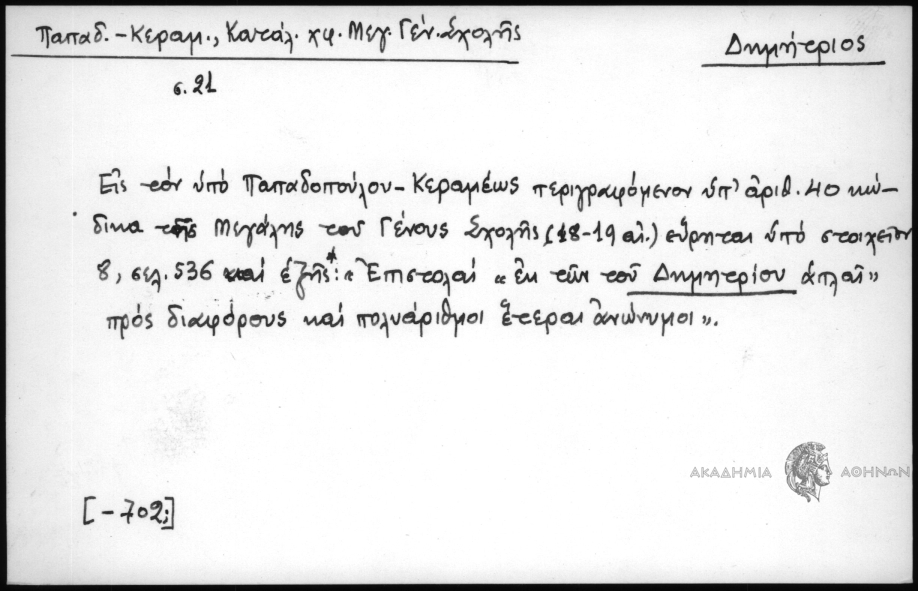 Παπαδ.-Κεραμ., Κατάλ. χφ. Μεγ. Γέν. Σχολῆς
Δημήτριος
σ. 21
Εἰς τόν ὑπό Παπαδοπούλου-Κεραμέως περιγραφόμενον ὑπ' ἀριθ. 40 κώ-
δικα τῆς Μεγάλης τοῦ Γένους Σχολῆς (18-19 αἰ.) εὕρηται ὑπό στοιχεῖον
8, σελ. 536 καί ἑξῆς*: «Ἐπιστολαί «ἐκ τῶν τοῦ Δημητρίου ἁπλαῖ»
πρός διαφόρους καί πολυάριθμοι ἕτεραι ἀνώνυμοι».
ΑΚΑΔΗΜΙΑ ΑΘΗΝΩΝ
[-702;]